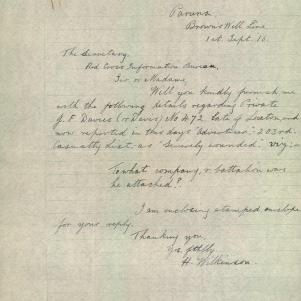 Paruna
Browns Well Line
1st Sept. 16.
The Secretary,
Red Cross Information Bureau.
Sir or Madame,
Will you kindly furnish me
with the following details regarding Private
J. F. Davies (or Davis) No 472 late of Loxton and
now reported in this days "Advertiser" 203rd.
Casualty list. as "Severely wounded." viz:-
To what company, & battalion was
he attached?
I am enclosing stamped envelope
for your reply.
Thanking you.
Yrs. fthfly
H. Wilkinson.